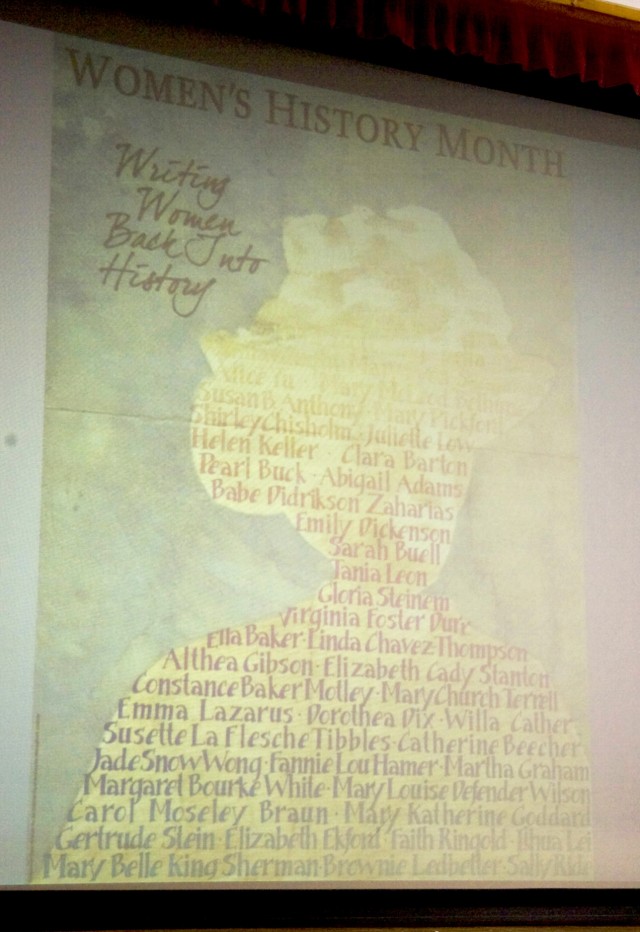 WOMEN'S HISTORY MONTH
Writing
Women
Back Into
History
Alice Mary McLeod
Susan B Anthony · Mary Pickford
Shirley Chisholm · Juliette Low
Helen Keller · Clara Barton
Pearl Buck · Abigail Adams
Babe Didrikson Zaharias
Emily Dickenson
Sarah Buell
Tania Leon
Gloria Steinem
Virginia Foster Durr
Ella Baker · Linda Chavez Thompson
Althea Gibson · Elizabeth Cady Stanton
Constance Baker Motley · Mary Church Terrell
Emma Lazarus · Dorothea Dix · Willa Cather
Susette La Flesche Tibbles · Catherine Beecher
Jade Snow Wong · Fannie Lou Hamer · Martha Graham
Margaret Bourke White · Mary Louise Defender Wilson
Carol Moseley Braun · Mary Katherine Goddard
Gertrude Stein · Elizabeth Ekford · Faith Ringold · Lei
Mary Belle King Sherman · Brownie Ledbetter · Sally Ride